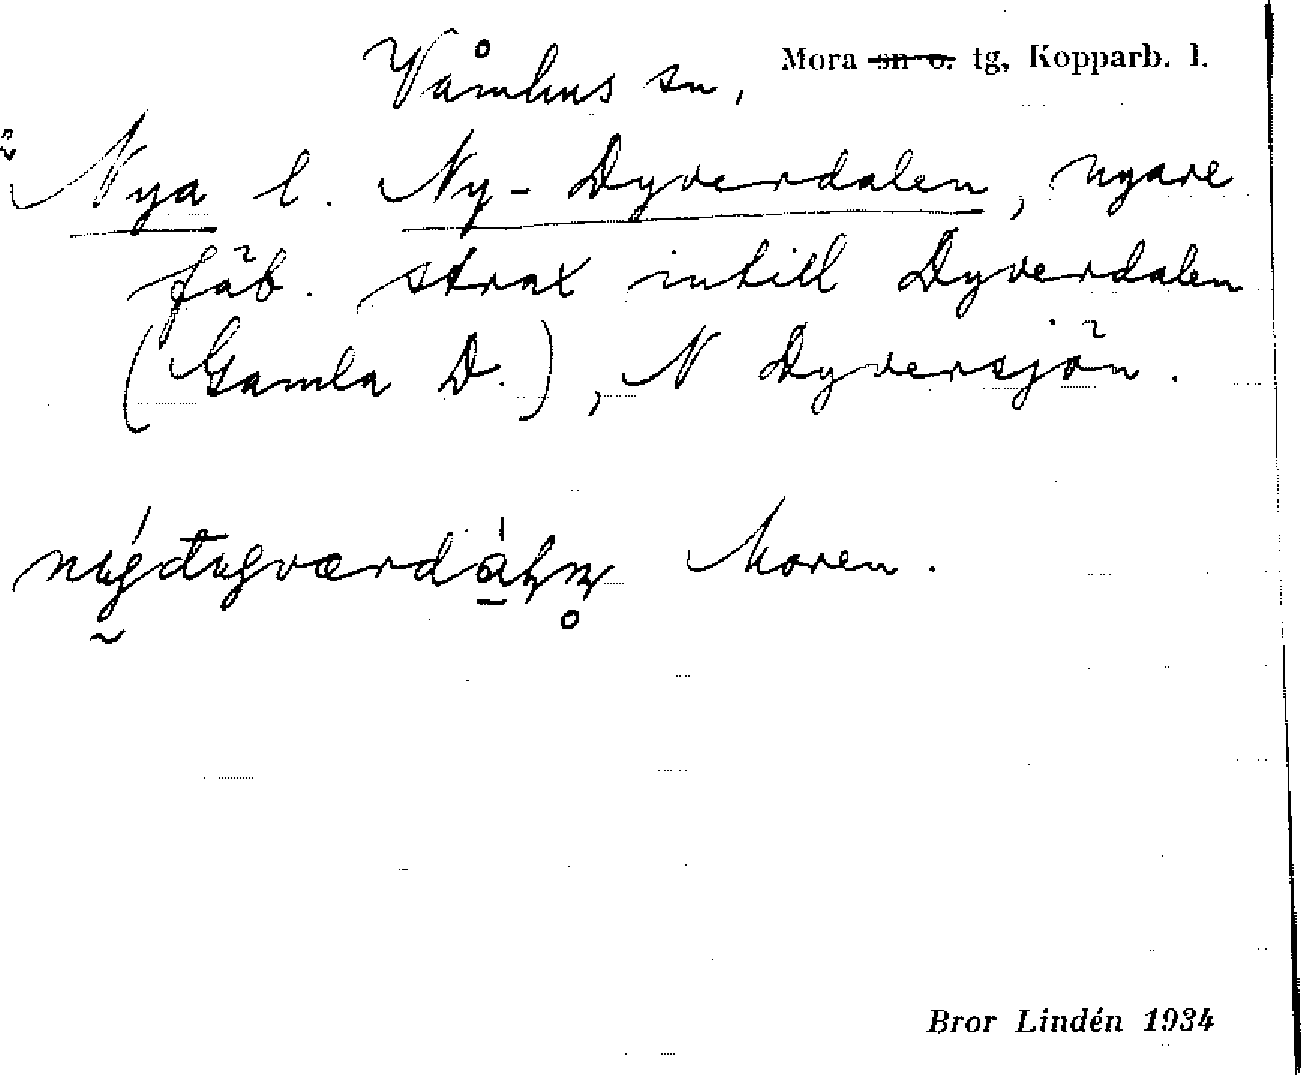 Våmhus sn, Mora ~~sn o.~~ tg, Kopparb. l.
Nya l. Ny-Dyverdalen, nyare
fäb. strax intill Dyverdalen
(Gamla D.), N Dyversjön.
Moren.
Bror Lindén 1934